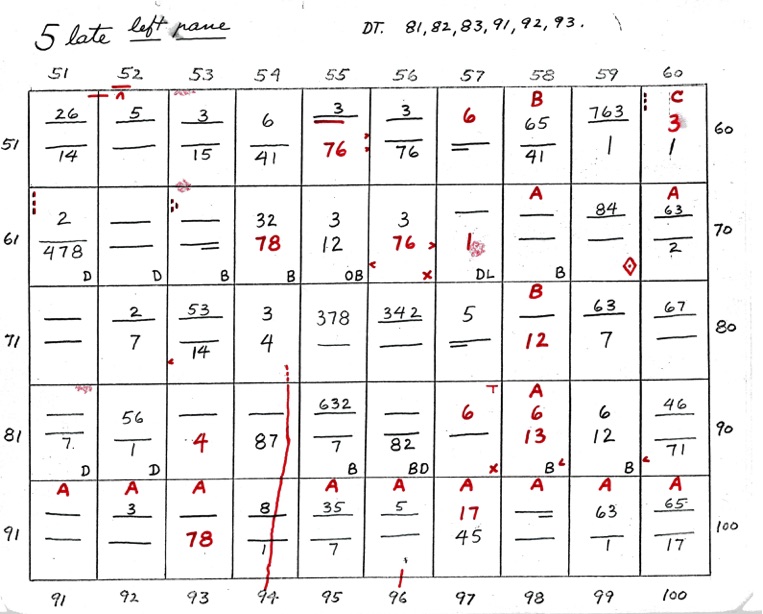 5 late left pane DT. 81, 82, 83, 91, 92, 93.
51 52 53 54 55 56 57 58 59 60
B C
26 5 3 6 3 3 6 65 763 3
51 60
14 15 41 76 76 41 1 1
A A
2 32 3 3 84 63
61 70
478 78 12 76 1 2
D D B B OB x DL B
B
2 53 3 378 342 5 63 67
71 80
7 14 4 12 7
T A
56 632 6 6 6 46
81 90
7. 1 4 87 7 82 13 12 71
D D B BD x B B
A A A A A A A A A
3 8 35 5 17 63 65
91 100
78 1 7 45 1 17
91 92 93 94 95 96 97 98 99 100